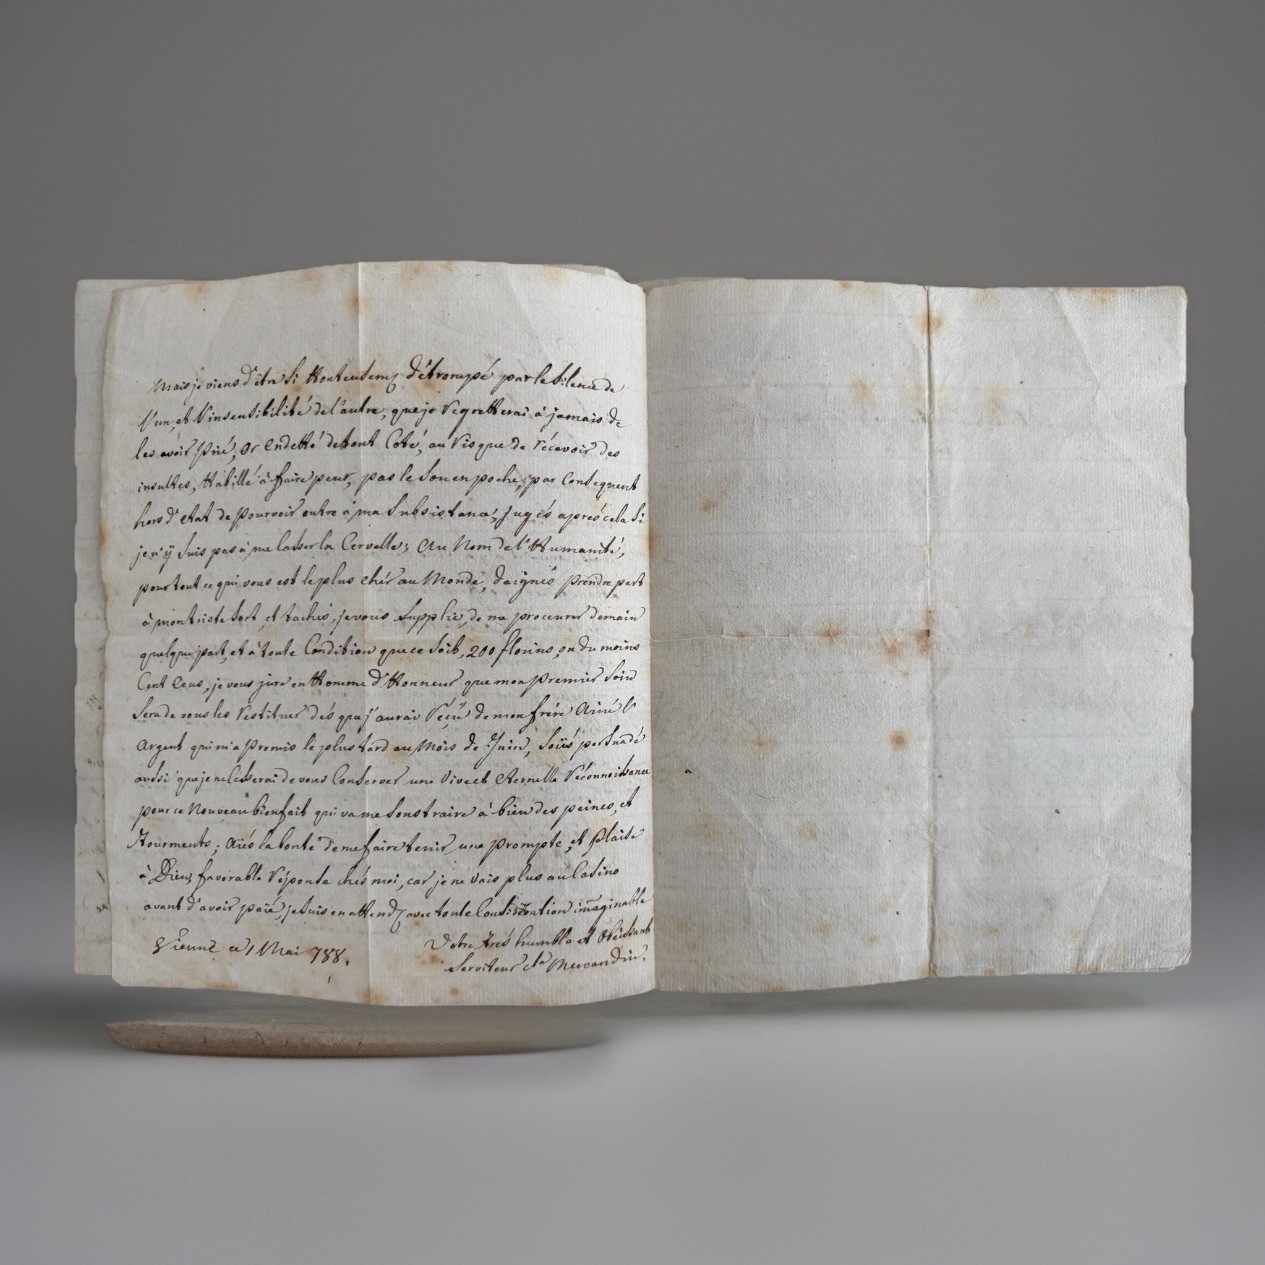 Mais je viens d'être si Honteusemt détrompé par le silence de
l'un, et l'insensibilité de l'autre, que je regretterai à jamais de
les avoir prié; or Endetté de tout Coté, au risque de récevoir des
insultes, Habillé à faire peur, pas le Sou en poche, par Consequent
hors d'Etat de pourvoir outre à ma Subsistance, Jugés aprés cela si
je n'ÿ suis pas à me la Cervelle; Au Nom de l'Humanité,
pour tout ce qui vous est le plus chér au Monde, daignés prendre part
à mon triste sort, et tachés, je vous supplie, de me procurer demain
quelque part, et à toute Condition que ce soit, 200 florins, ou du moins
Cent Ecus, je vous jure en Homme d'Honneur que mon premier Soin
Sera de vous les restituer dés que j'aurai réçu de mon frére Ainé l'
Argent qui m'a promis le plus tard au Mois de Juin, Soiés persuadé
aussi que je ne Cesserai de vous Conserver une Vive et Eternelle réconnoissance
pour ce Nouveau bienfait qui va me Soustraire à bien des peines, et
Tourments; Aiés la bonté de me faire tenir une prompte, et plaise
à Dieu, favorable réponse chés moi, car je ne vais plus au Casino
avant d'avoir païé, je suis en attendt avec toute la Considération imaginable
Vienne ce 1 Mai 788.
Votre trés humble et Obéissant
Serviteur Cte Mercandin.